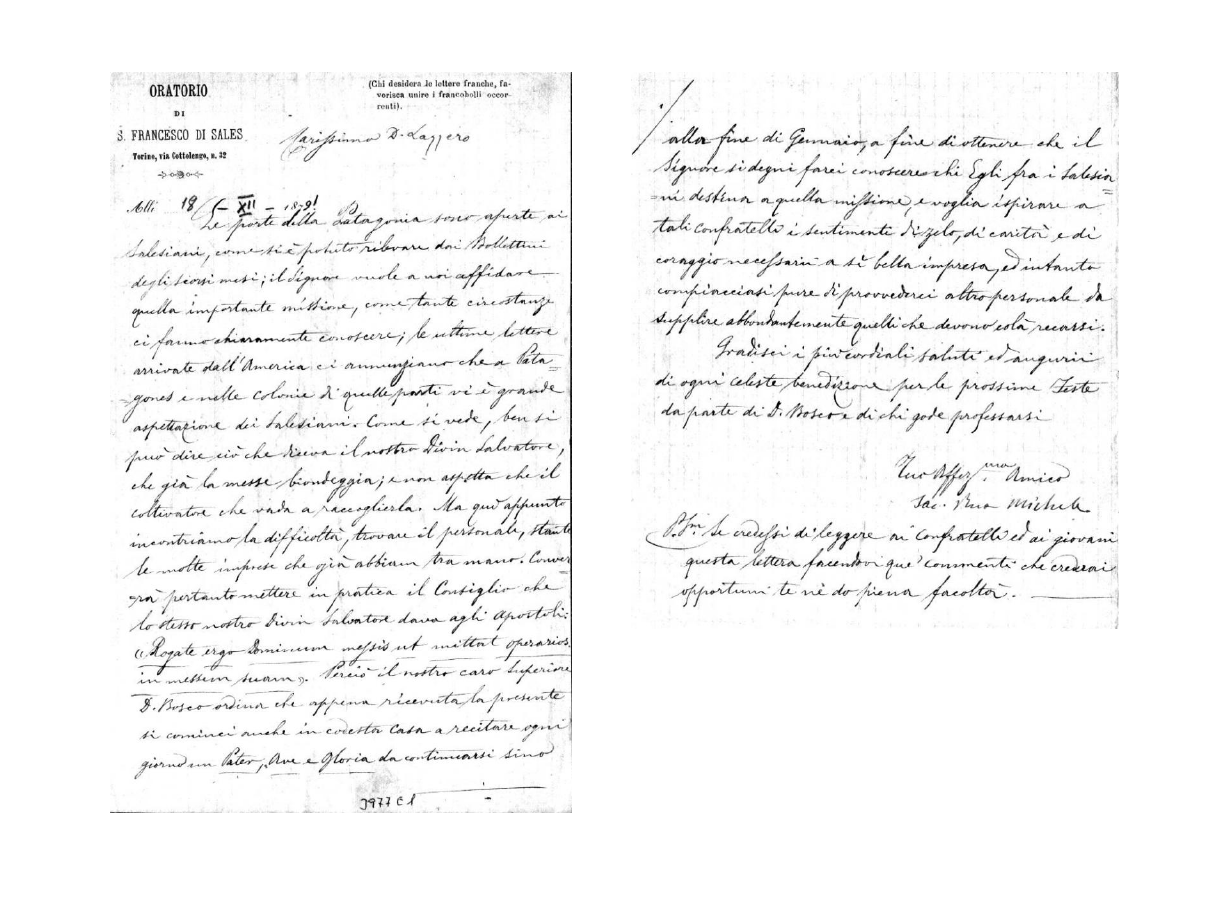 ORATORIO
DI
S. FRANCESCO DI SALES
Torino, via Cottolengo, n. 32
(Chi desidera le lettere franche, fa-
vorisca unire i francobolli occor-
renti).
Carissimo D. Lazzero
Alli 18 XII - 1879!
Le porte della Patagonia sono aperte ai
Salesiani, come si è potuto rilevare dai Bollettini
degli scorsi mesi; il Signore vuole a noi affidare
quella importante missione, come tante circostanze
ci fanno chiaramente conoscere; le ultime lettere
arrivate dall'America ci annunziano che a Pata=
gones e nelle colonie di quelle parti vi è grande
aspettazione dei Salesiani. Come si vede, ben si
può dire ciò che diceva il nostro Divin Salvatore,
che già la messe biondeggia; e non aspetta che il
coltivatore che vada a raccoglierla. Ma qui appunto
incontriamo la difficoltà, trovare il personale, stante
le molte imprese che già abbiam tra mano. Conver=
rà pertanto mettere in pratica il Consiglio che
lo stesso nostro Divin Salvatore dava agli Apostoli:
« Rogate ergo Dominum messis ut mittat operarios
in messem suam ». Perciò il nostro caro Superiore
D. Bosco ordina che appena ricevuta la presente
si cominci anche in codesta Casa a recitare ogni
giorno un Pater, Ave e Gloria da continuarsi sino
J977 C1
alla fine di Gennaio, a fine di ottenere che il
Signore si degni farci conoscere chi Egli fra i Salesia
=ni destina a quella missione, e voglia ispirare a
tali confratelli i sentimenti di zelo, di carità e di
coraggio necessarii a sì bella impresa, ed intanto
compiacciasi pure di provvederci altro personale da
supplire abbondantemente quelli che devono colà recarsi.
Gradisci i più cordiali saluti ed augurii
di ogni celeste benedizione per le prossime Feste
da parte di D. Bosco e di chi gode professarsi
Tuo Affez.mo Amico
Sac. Rua Michele
Se credessi di leggere ai Confratelli ed ai giovani
questa lettera facendovi que' commenti che crederai
opportuni te nè do piena facoltà.